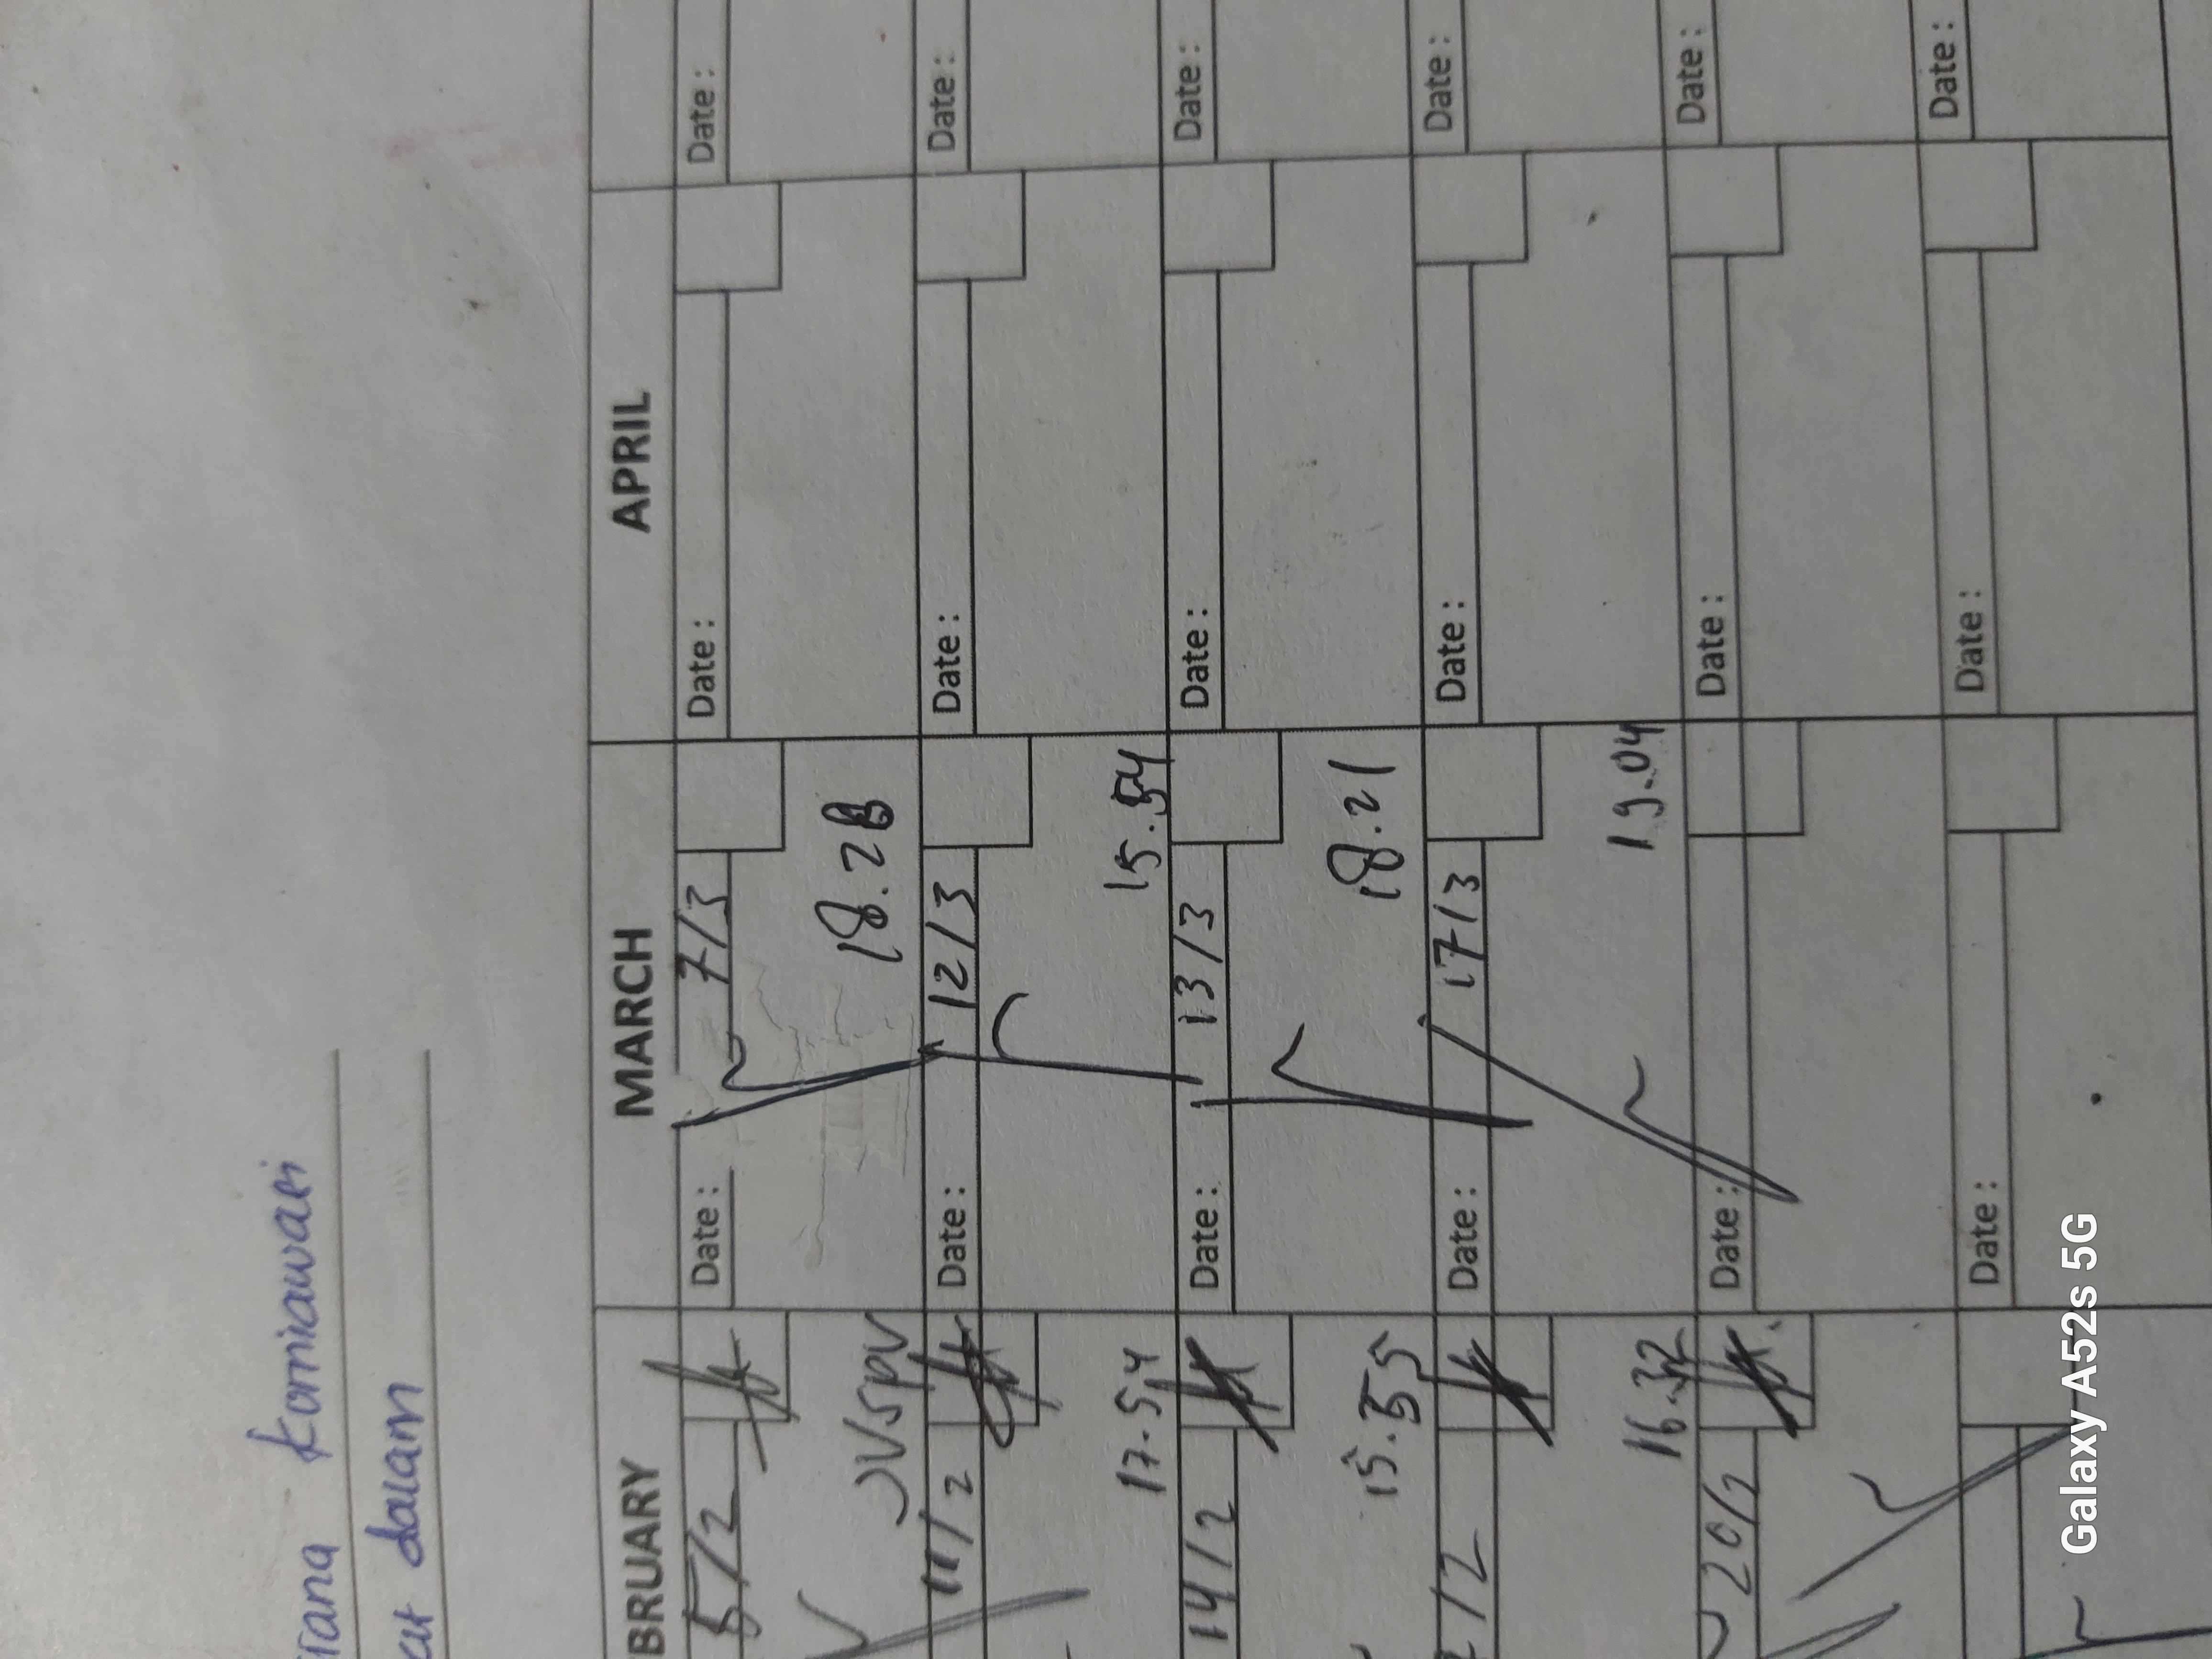 Kurniawati
dalam
BRUARY MARCH APRIL
5/2 Date: 7/3 Date: Date:
18.28
11/2 Date: 12/3 Date: Date:
17.54 15.54
14/2 Date: 13/3 Date: Date:
15.55 18.21
/2 Date: 17/3 Date: Date:
16.32 19.04
20/2 Date: Date: Date:
Date: Date: Date:
Galaxy A52s 5G